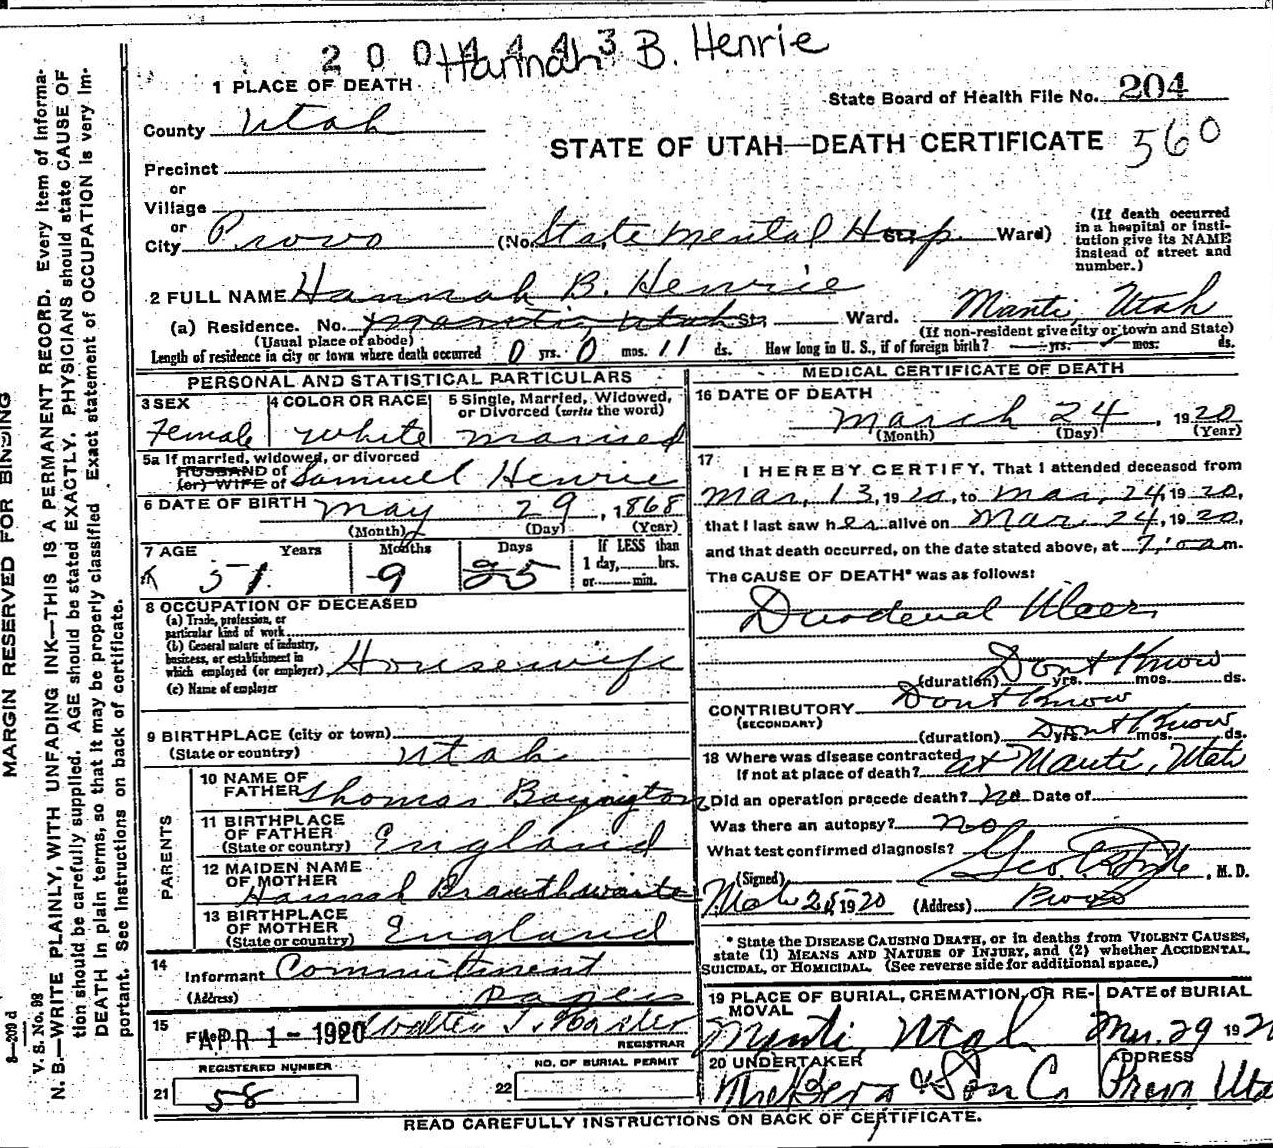 2004443
Hannah B. Henrie
1 PLACE OF DEATH
State Board of Health File No. 204
County Utah
STATE OF UTAH—DEATH CERTIFICATE 560
Precinct
or
Village
or
City Provo (No. State Mental Hosp. St., Ward)
(If death occurred in a hospital or insti-
tution give its NAME
instead of street and
number.)
2 FULL NAME Hannah B. Henrie
(a) Residence. No. Manti, Utah St. Ward. Manti, Utah
(Usual place of abode) (If non-resident give city or town and State)
Length of residence in city or town where death occurred 0 yrs. 0 mos. 11 ds. How long in U. S., if of foreign birth? yrs. mos. ds.
PERSONAL AND STATISTICAL PARTICULARS
3 SEX
Female
4 COLOR OR RACE
White
5 Single, Married, Widowed,
or Divorced (write the word)
married
5a If married, widowed, or divorced
HUSBAND of
(or) WIFE of Samuel Henrie
6 DATE OF BIRTH May 29, 1868
(Month) (Day) (Year)
7 AGE Years Months Days If LESS than
1 day, hrs.
or min.
51 9 25
8 OCCUPATION OF DECEASED
(a) Trade, profession, or
particular kind of work
(b) General nature of industry,
business, or establishment in
which employed (or employer) Housewife
(c) Name of employer
9 BIRTHPLACE (city or town)
(State or country) Utah
PARENTS
10 NAME OF
FATHER Thomas
11 BIRTHPLACE
OF FATHER
(State or country) England
12 MAIDEN NAME
OF MOTHER
Hannah Brauthwaite
13 BIRTHPLACE
OF MOTHER
(State or country) England
14
Informant Commitment
(Address) papers
15
Filed APR 1 - 1920 Walter T.
REGISTRAR
REGISTERED NUMBER
21 58
NO. OF BURIAL PERMIT
22
MEDICAL CERTIFICATE OF DEATH
16 DATE OF DEATH
March 24, 1920
(Month) (Day) (Year)
17
I HEREBY CERTIFY, That I attended deceased from
Mar, 13, 1920, to Mar, 24, 1920,
that I last saw her alive on Mar. 24, 1920,
and that death occurred, on the date stated above, at 7:00 am.
The CAUSE OF DEATH* was as follows:
Duodenal Ulcer.
Dont Know
(duration) yrs. mos. ds.
CONTRIBUTORY Dont Know
(SECONDARY)
(duration) Dont Know yrs. mos. ds.
18 Where was disease contracted
if not at place of death? at Manti, Utah
Did an operation precede death? no Date of
Was there an autopsy? no
What test confirmed diagnosis?
(Signed) Geo. E. , M. D.
Mch 25 1920 (Address) Provo
* State the DISEASE CAUSING DEATH, or in deaths from VIOLENT CAUSES,
state (1) MEANS AND NATURE OF INJURY, and (2) whether ACCIDENTAL,
SUICIDAL, or HOMICIDAL. (See reverse side for additional space.)
19 PLACE OF BURIAL, CREMATION, OR RE-
MOVAL
Manti, Utah
DATE of BURIAL
Mar. 29 192
20 UNDERTAKER
& Son Co
ADDRESS
Provo Uta
READ CAREFULLY INSTRUCTIONS ON BACK OF CERTIFICATE.
MARGIN RESERVED FOR BINDING
N. B.—WRITE PLAINLY, WITH UNFADING INK—THIS IS A PERMANENT RECORD. Every item of informa-
tion should be carefully supplied. AGE should be stated EXACTLY. PHYSICIANS should state CAUSE OF
DEATH in plain terms, so that it may be properly classified. Exact statement of OCCUPATION is very im-
portant. See instructions on back of certificate.
V. S. No. 98
8—209 d